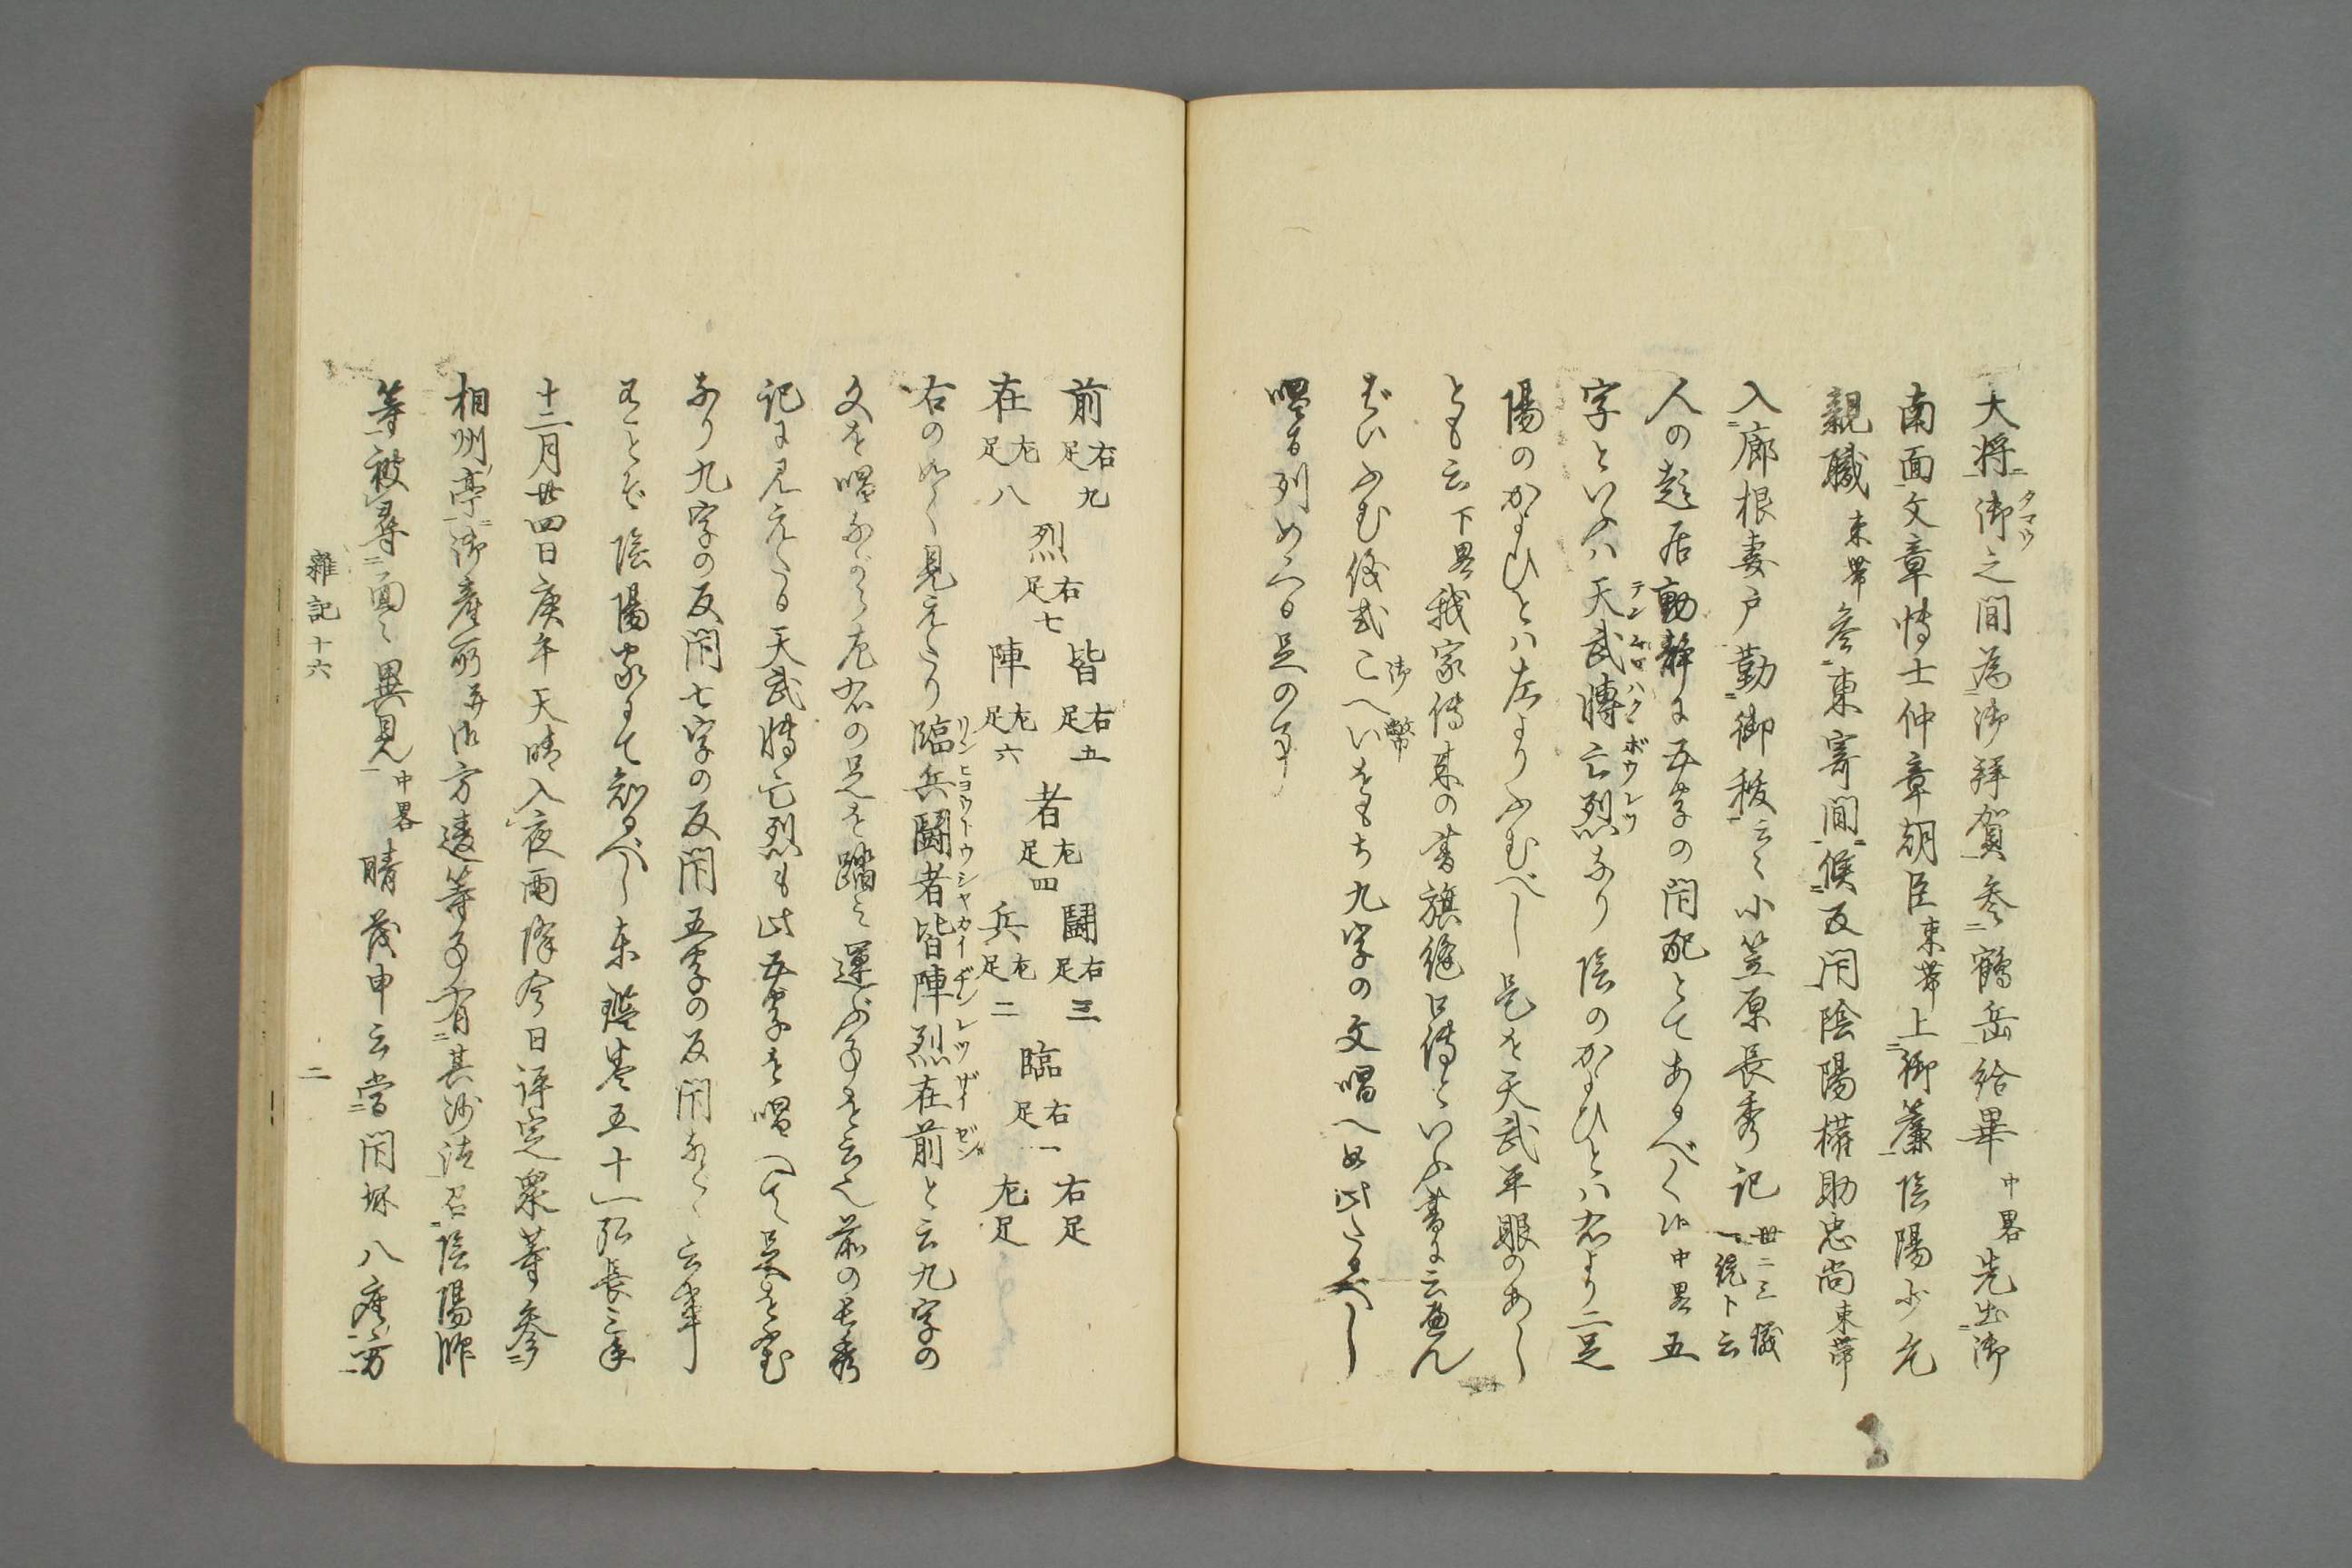 大将御之間為御拝賀参鶴岳給畢中畧先出御
タマウ
南面文章博士仲章朝臣束帯上御簾陰陽少允
親職束帯参東寄間候反閇陰陽権助忠尚束帯
入廊根妻戸勤御秡云々小笠原長秀記
人の起居動静に五字の閇配とてあるべく候中畧五
字といふハ天武博亡烈なり陰のかよひとハ右より二足
陽のかよひとハ左よりふむべし是を天武平眼のあし
とも云下畧我家傳来の書旗縫口傳といふ書に云
九字の文唱へ
唱る列めへる足の事
前右足九
在左足八
烈右足七
陣左足六
皆右足五
者左足四
闘右足三
兵左足二
臨右足一
右足
左足
右の如く見えたり臨兵闘者皆陣烈在前と云九字の
リンヒヨウトウシヤカイヂンレツザイゼン
文を唱ながら左右の足を踏み運ぶ事を云也前の長秀
記に見えたる天武博亡烈も此五字を唱へて足をふむ
なり九字の反閇七字の反閇五字の反閇なと云事
有ことぞ陰陽家にて知るべし東鑑巻五十一弘長三年
十二月廿四日庚午天晴入夜雨降今日評定衆等参
相州亭御産所并御方違等事有其沙汰召陰陽師
等被尋面々異見中畧晴茂申云当閇坏八座方
雑記十六
二